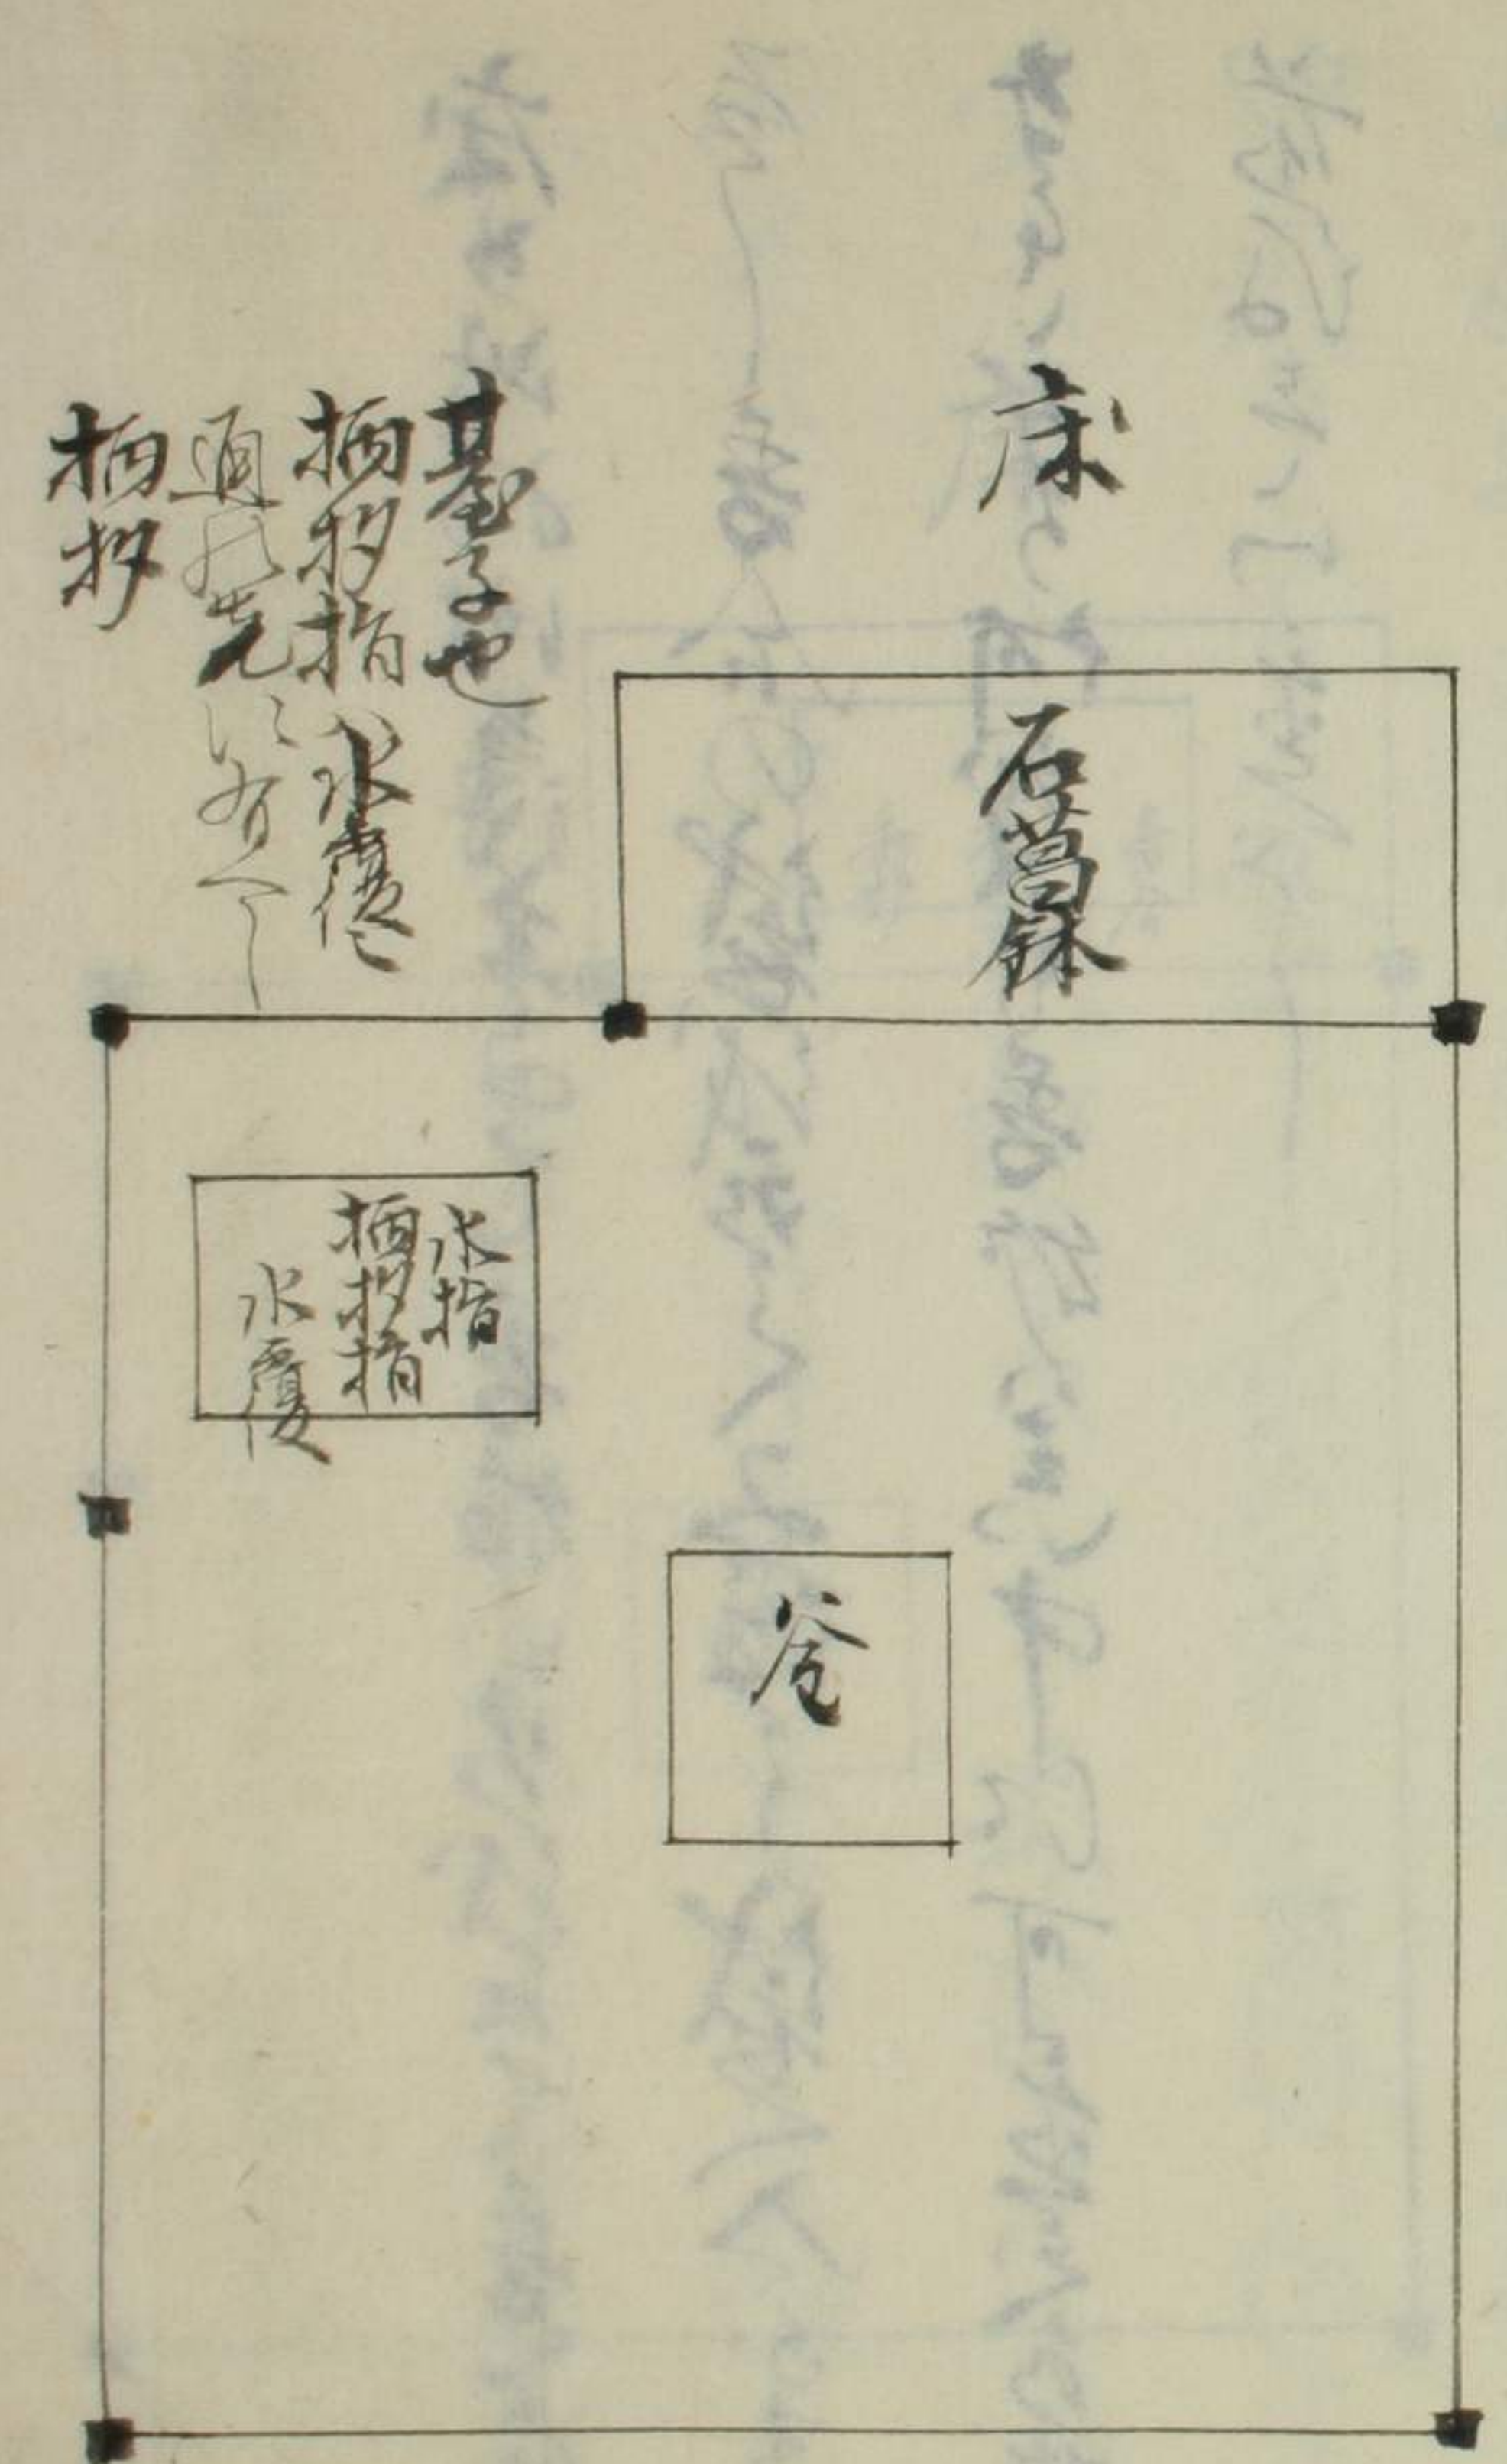 床
石菖鉢
臺子也
柄杓指ハ水覆
通の先に有へし
柄杓
水指
柄杓指
水覆
釜